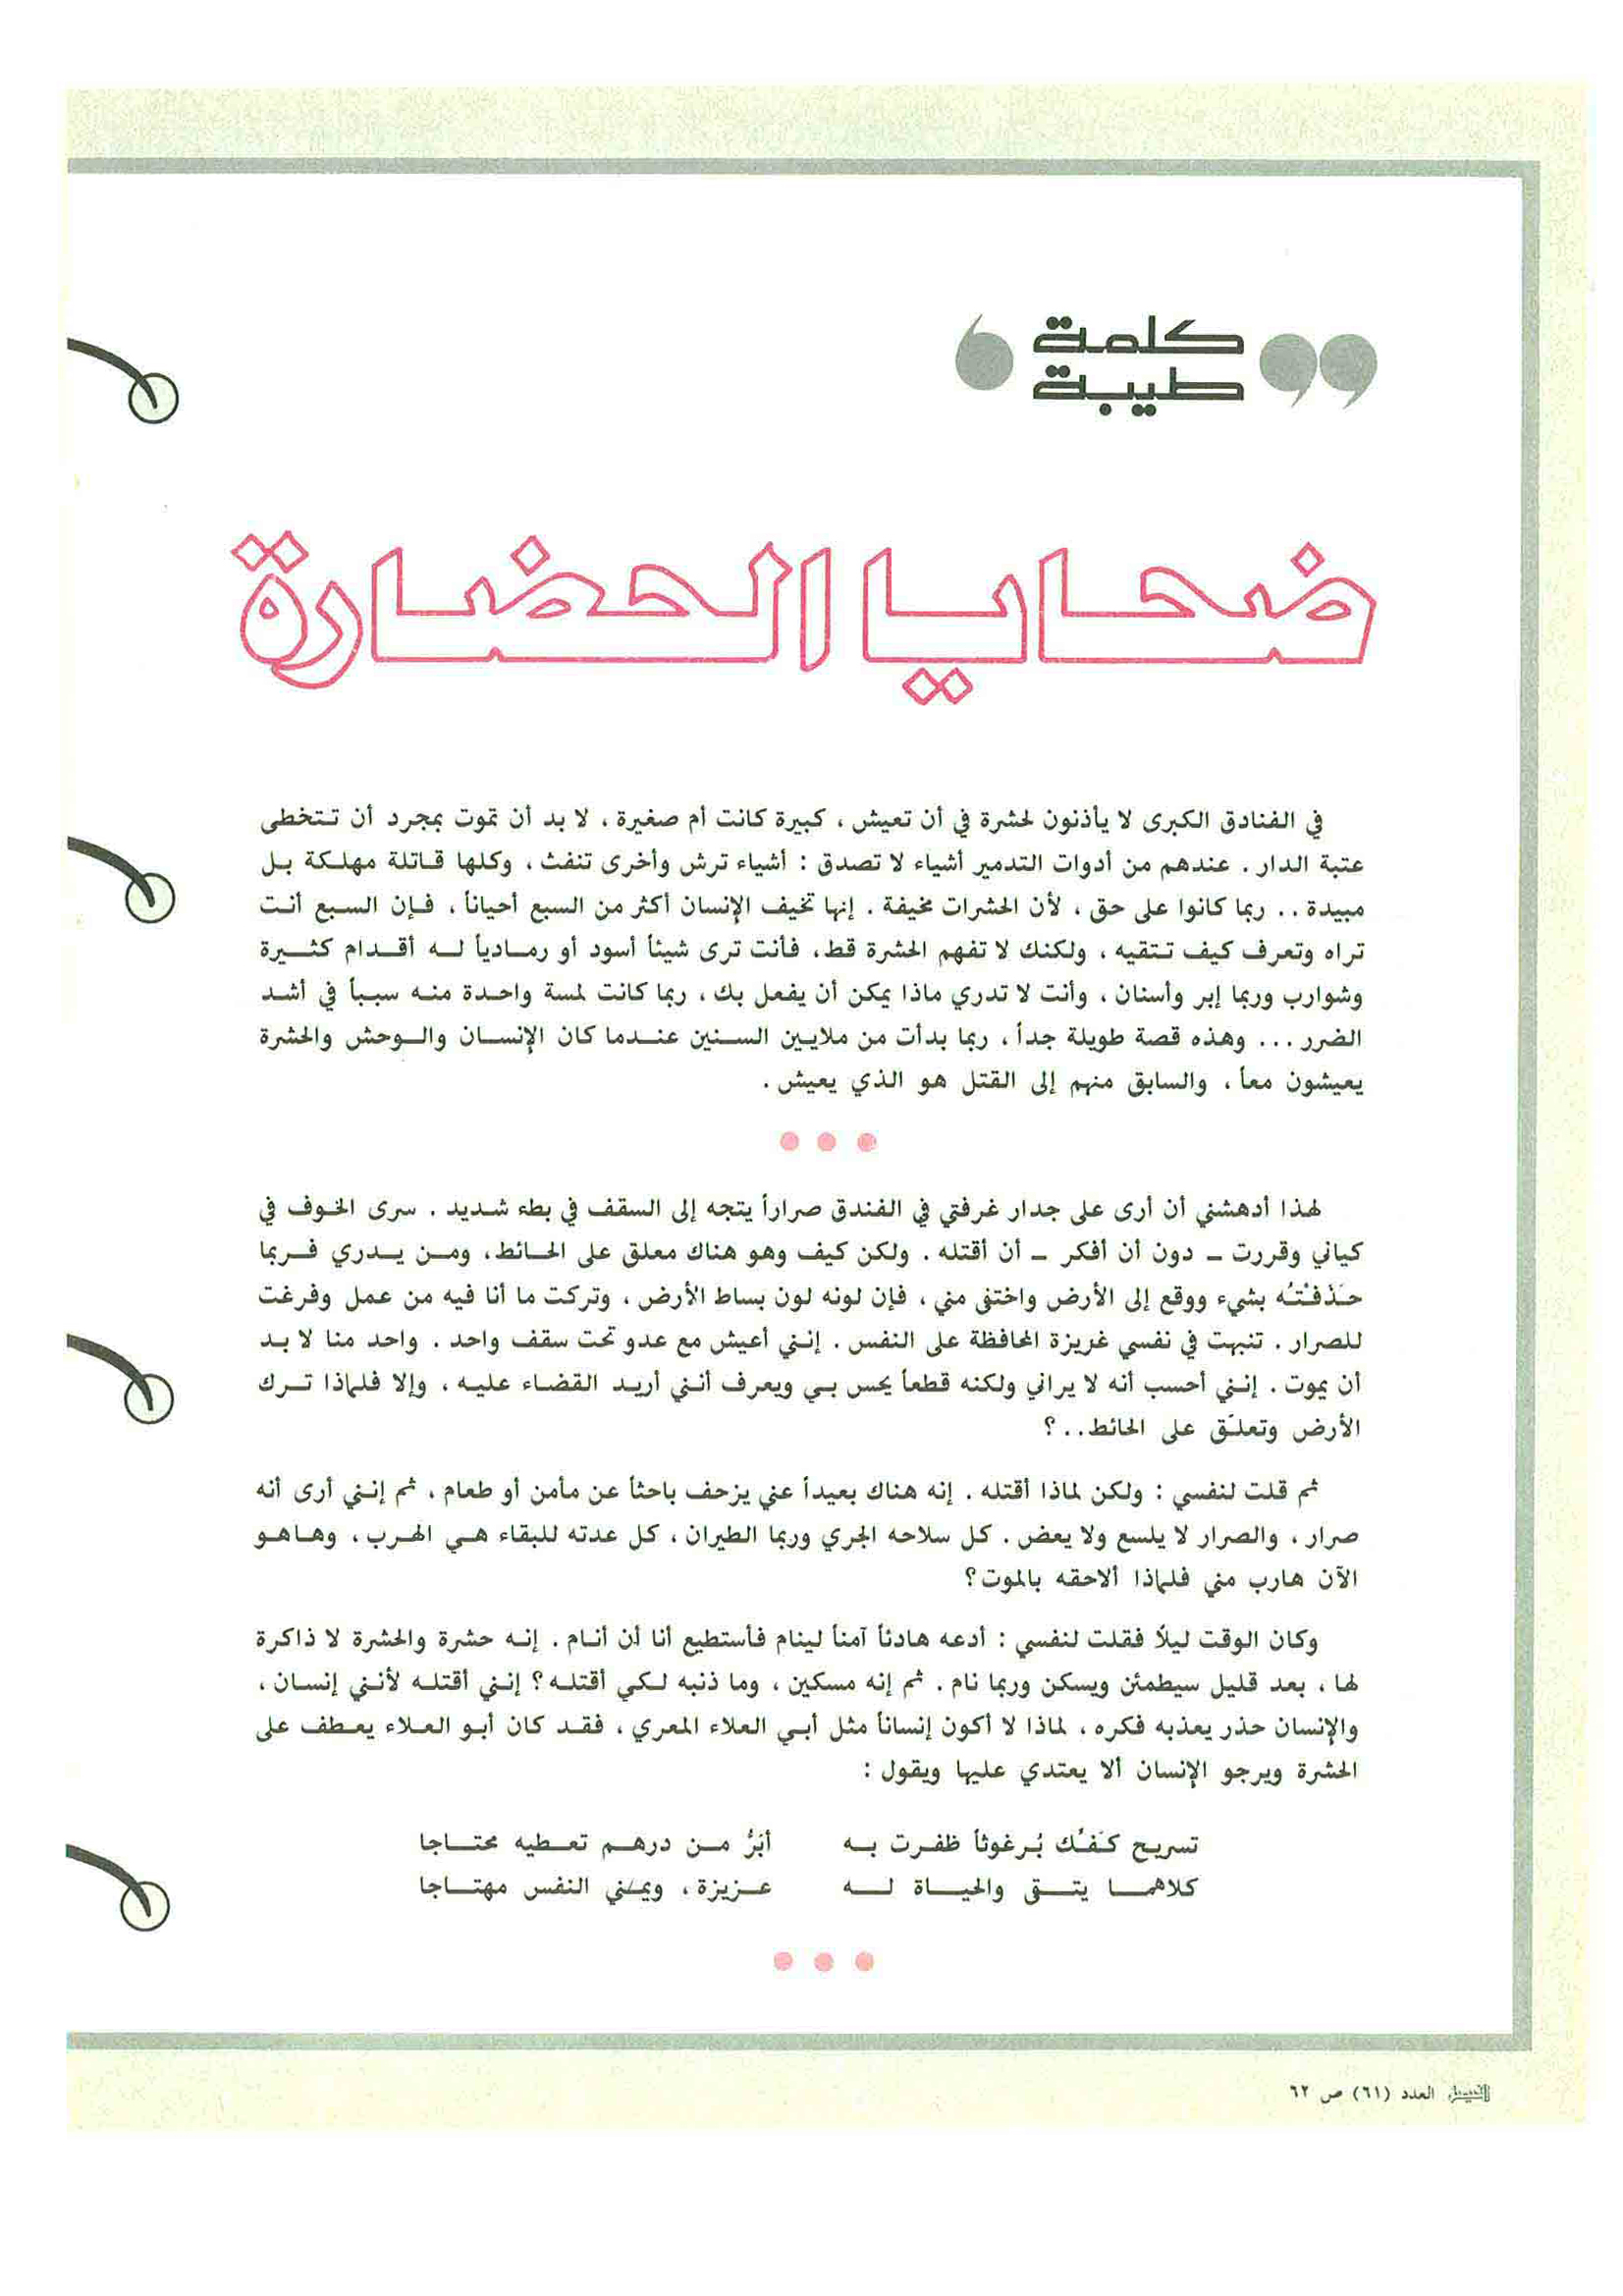 كلمة
طيبة
ضحايا الحضارة
في الفنادق الكبرى لا يأذنون لحشرة في أن تعيش ، كبيرة كانت أم صغيرة ، لا بد أن تموت بمجرد أن تتخطى
عتبة الدار . عندهم من أدوات التدمير أشياء لا تصدق : أشياء ترش وأخرى تنفث ، وكلها قاتلة مهلكة بل
مبيدة .. ربما كانوا على حق ، لأن الحشرات مخيفة . إنها تخيف الإنسان أكثر من السبع أحياناً ، فإن السبع أنت
تراه وتعرف كيف تتقيه ، ولكنك لا تفهم الحشرة قط، فأنت ترى شيئاً أسود أو رمادياً له أقدام كثيرة
وشوارب وربما إبر وأسنان ، وأنت لا تدري ماذا يمكن أن يفعل بك ، ربما كانت لمسة واحدة منه سبباً في أشد
الضرر ... وهذه قصة طويلة جداً ، ربما بدأت من ملايين السنين عندما كان الإنسان والوحش والحشرة
يعيشون معاً ، والسابق منهم إلى القتل هو الذي يعيش .
لهذا أدهشني أن أرى على جدار غرفتي في الفندق صراراً يتجه إلى السقف في بطء شديد . سرى الخوف في
كياني وقررت - دون أن أفكر - أن أقتله . ولكن كيف وهو هناك معلق على الحائط، ومن يدري فربما
حَذفْتُه بشيء ووقع إلى الأرض واختفى مني ، فإن لونه لون بساط الأرض ، وتركت ما أنا فيه من عمل وفرغت
للصرار . تنبهت في نفسي غريزة المحافظة على النفس . إنني أعيش مع عدو تحت سقف واحد . واحد منا لا بد
أن يموت . إنني أحسب أنه لا يراني ولكنه قطعاً يحس بي ويعرف أنني أريد القضاء عليه ، وإلا فلماذا ترك
الأرض وتعلّق على الحائط..؟
ثم قلت لنفسي : ولكن لماذا أقتله . إنه هناك بعيداً عني يزحف باحثاً عن مأمن أو طعام ، ثم إنني أرى أنه
صرار ، والصرار لا يلسع ولا يعض . كل سلاحه الجري وربما الطيران ، كل عدته للبقاء هي الهرب ، وهاهو
الآن هارب مني فلماذا ألاحقه بالموت؟
وكان الوقت ليلاً فقلت لنفسي : أدعه هادئاً آمناً لينام فأستطيع أنا أن أنام . إنه حشرة والحشرة لا ذاكرة
لها ، بعد قليل سيطمئن ويسكن وربما نام . ثم إنه مسكين ، وما ذنبه لكي أقتله؟ إنني أقتله لأنني إنسان ،
والإنسان حذر يعذبه فكره ، لماذا لا أكون إنساناً مثل أبي العلاء المعري ، فقد كان أبو العلاء يعطف على
الحشرة ويرجو الإنسان ألا يعتدي عليها ويقول :
تسريح كَفِّك بُرغوثاً ظفرت به أبَرُّ من درهم تعطيه محتاجا
كلاهما يتقي والحياة له عزيزة ، ويمني النفس مهتاجا
الفيصل العدد (٦١) ص ٦٢